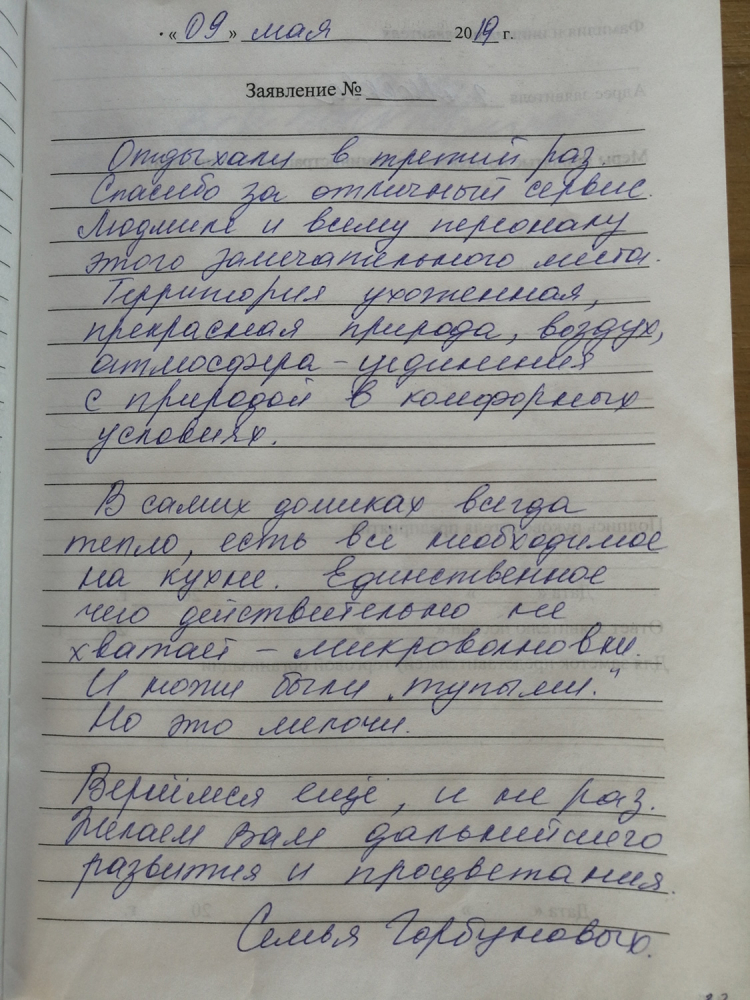 «09» мая 2019 г.
Заявление №
Отдыхали в третий раз.
Спасибо за отличный сервис.
Людмиле и всему персоналу
этого замечательного места.
Территория ухоженная,
прекрасная природа, воздух,
атмосфера – уединения
с природой в комфорных
условиях.
В самих домиках всегда
тепло, есть всё необходимое
на кухне. Единственное
чего действительно не
хватает – микроволновки.
И ножи были „тупыми."
Но это мелочи.
Вернёмся ещё, и не раз.
Желаем вам дальнейшего
развития и процветания.
Семья Горбуновых.